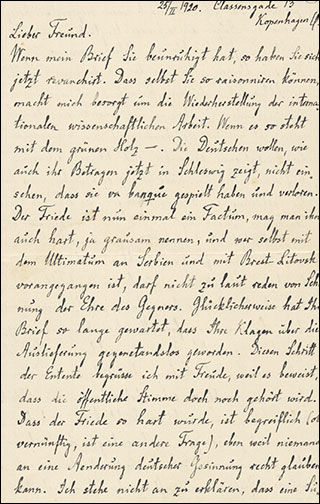 25/II 1920. Classensgade 13
Kopenhagen
Lieber Freund.
Wenn mein Brief Sie beunruhigt hat, so haben Sie sich
jetzt revanchirt. Dass selbst Sie so raisonniren können,
macht mich besorgt um die Wiederherstellung der interna-
tionalen wissenschaftlichen Arbeit. Wenn es so steht
mit dem grünen Holz —. Die Deutschen wollen, wie
auch ihr Betragen jetzt in Schleswig zeigt, nicht ein-
sehen, dass sie va banque gespielt haben und verloren.
Der Friede ist nun einmal ein Factum, mag man ihn
auch hart, ja grausam nennen, und wer selbst mit
dem Ultimatum an Serbien und mit Brest Litovsk
vorangegangen ist, darf nicht zu laut reden von Scho-
nung der Ehre des Gegners. Glücklicherweise hat Ih
Brief so lange gewartet, dass Ihre Klagen über die
Auslieferung gegenstandslos geworden. Diesen Schritt
der Entente begrüsse ich mit Freude, weil es beweist,
dass die öffentliche Stimme doch noch gehört wird.
Dass der Friede so hart wurde, ist begreiflich (ob
vernünftig, ist eine andere Frage), eben weil niemand
an eine Aenderung deutscher Gesinnung recht glauben
kann. Ich stehe nicht an zu erklären, dass eine